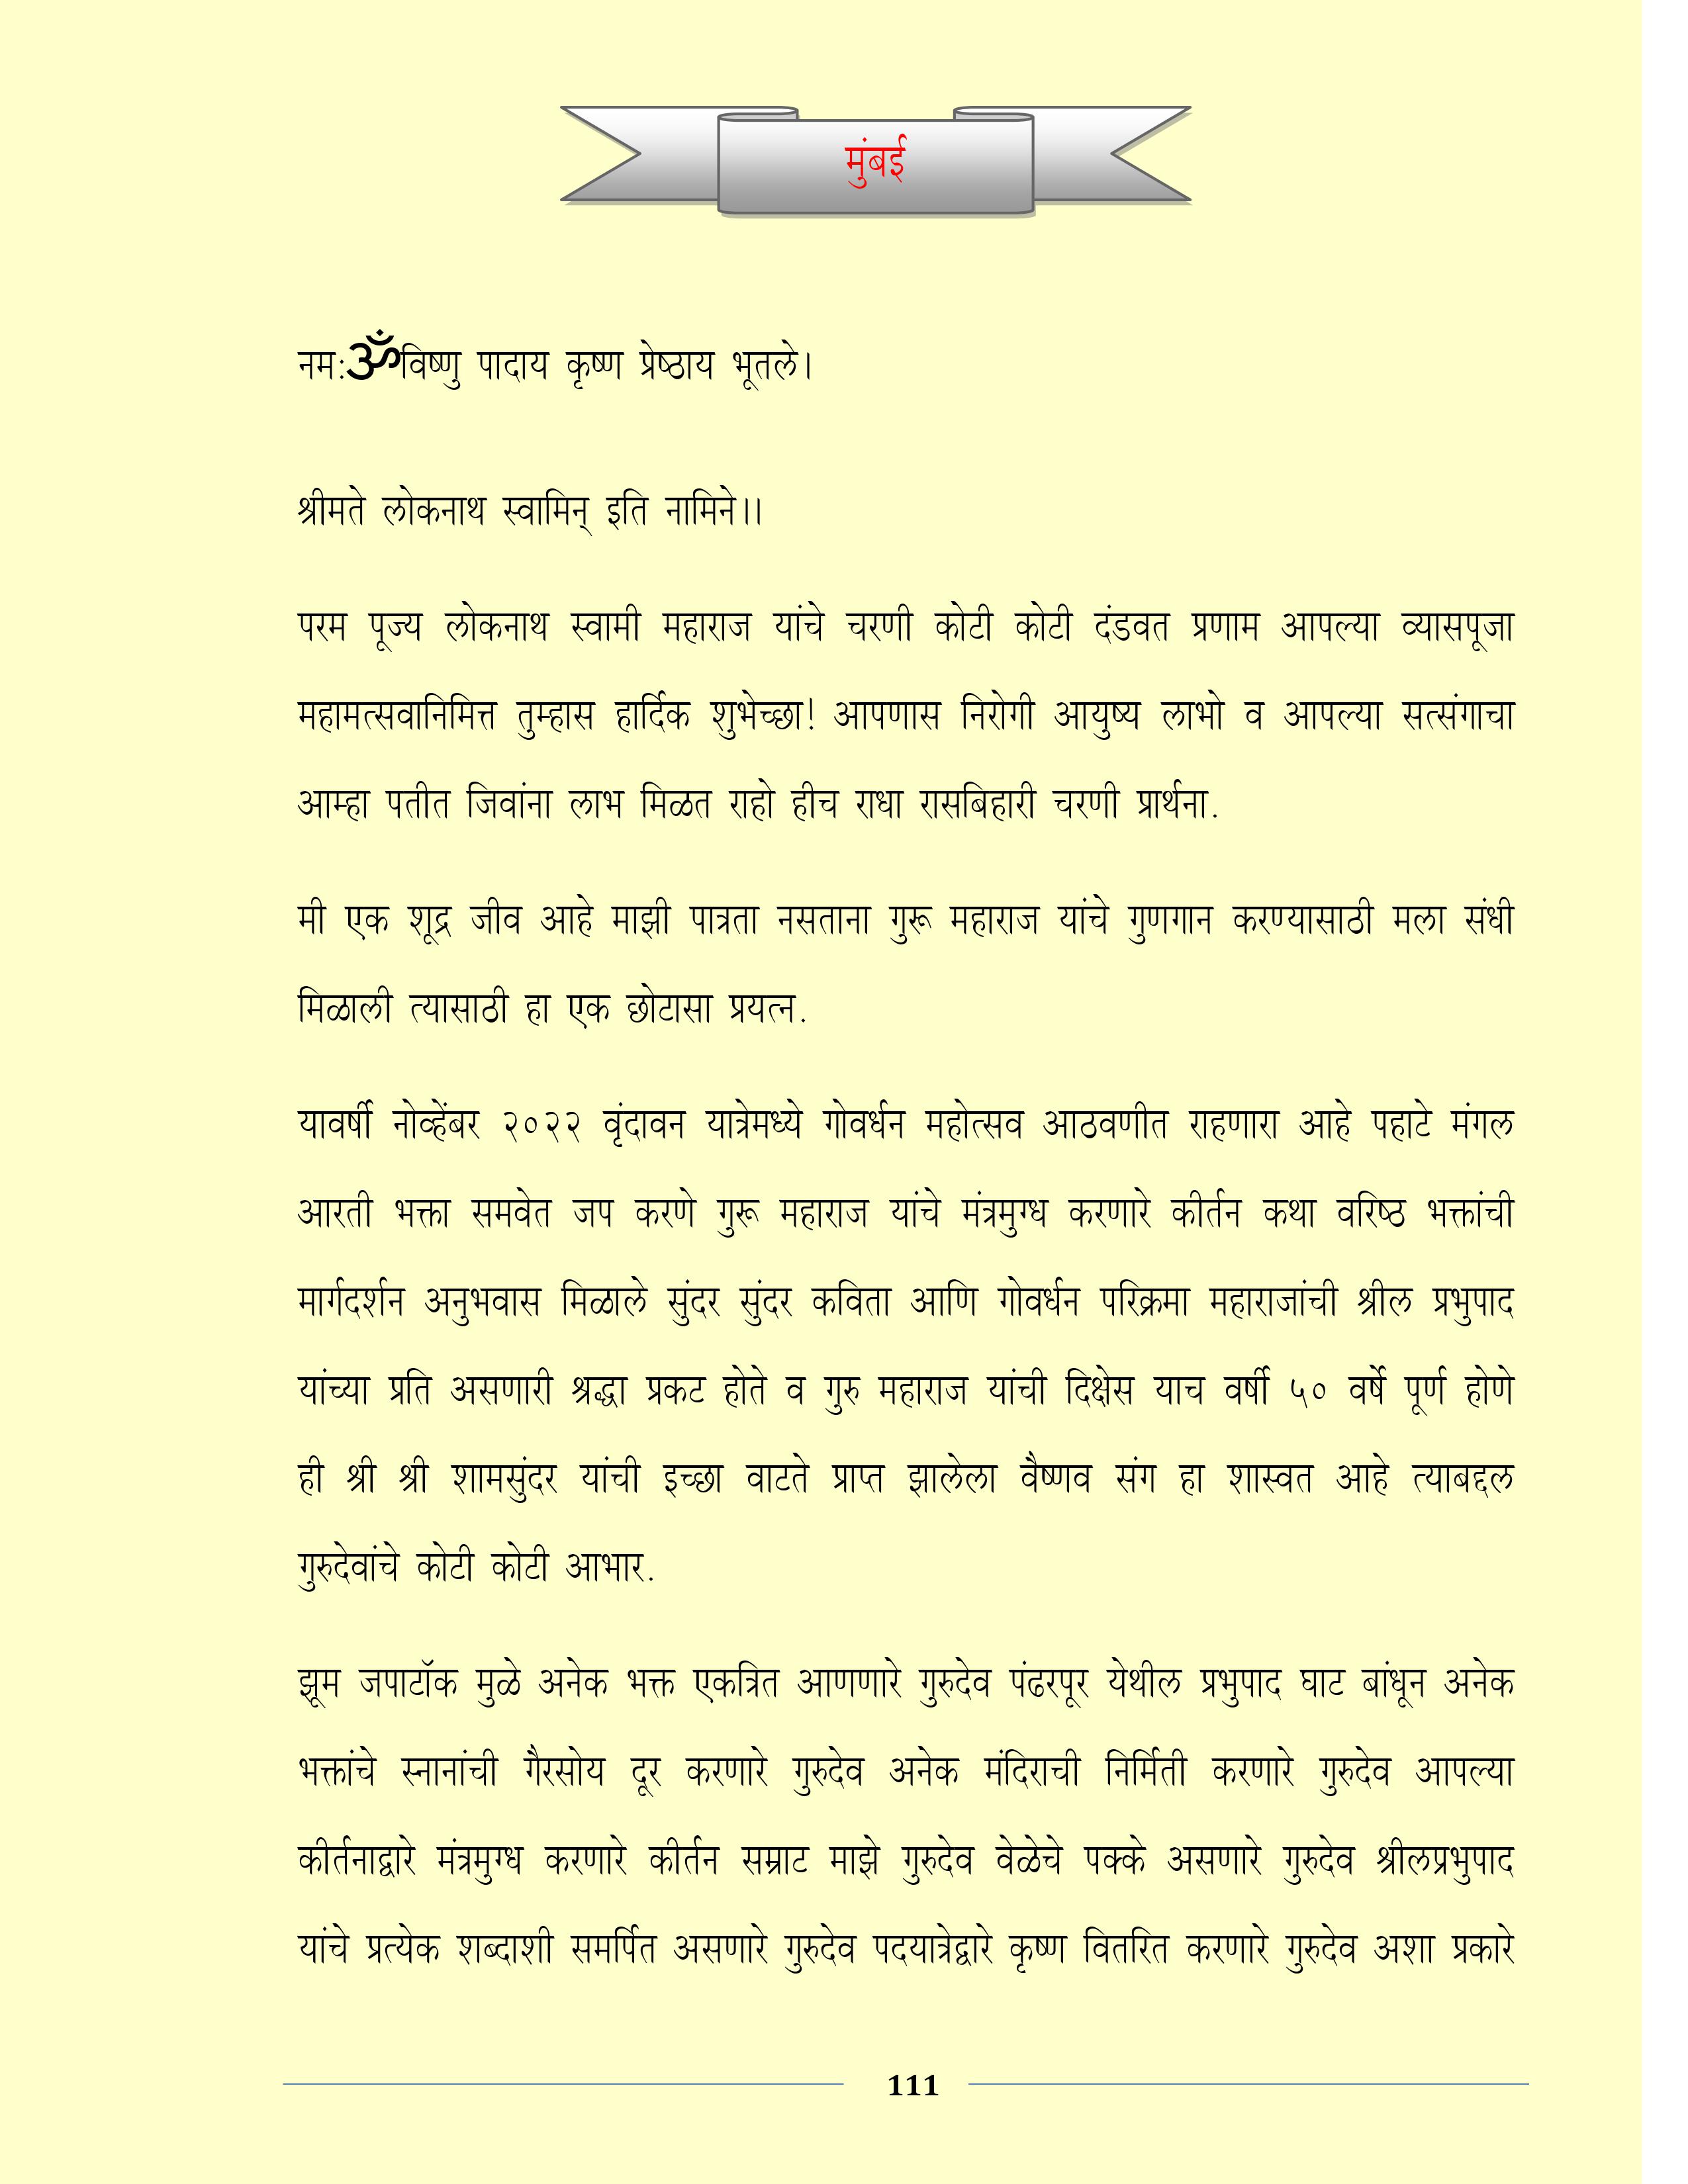 मुंबई
नमःॐविष्णु पादाय कृष्ण प्रेष्ठाय भूतले।
श्रीमते लोकनाथ स्वामिन् इति नामिने।।
परम पूज्य लोकनाथ स्वामी महाराज यांचे चरणी कोटी कोटी दंडवत प्रणाम आपल्या व्यासपूजा
महामत्सवानिमित्त तुम्हास हार्दिक शुभेच्छा! आपणास निरोगी आयुष्य लाभो व आपल्या सत्संगाचा
आम्हा पतीत जिवांना लाभ मिळत राहो हीच राधा रासबिहारी चरणी प्रार्थना.
मी एक शूद्र जीव आहे माझी पात्रता नसताना गुरू महाराज यांचे गुणगान करण्यासाठी मला संधी
मिळाली त्यासाठी हा एक छोटासा प्रयत्न.
यावर्षी नोव्हेंबर २०२२ वृंदावन यात्रेमध्ये गोवर्धन महोत्सव आठवणीत राहणारा आहे पहाटे मंगल
आरती भक्ता समवेत जप करणे गुरू महाराज यांचे मंत्रमुग्ध करणारे कीर्तन कथा वरिष्ठ भक्तांची
मार्गदर्शन अनुभवास मिळाले सुंदर सुंदर कविता आणि गोवर्धन परिक्रमा महाराजांची श्रील प्रभुपाद
यांच्या प्रति असणारी श्रद्धा प्रकट होते व गुरु महाराज यांची दिक्षेस याच वर्षी ५० वर्षे पूर्ण होणे
ही श्री श्री शामसुंदर यांची इच्छा वाटते प्राप्त झालेला वैष्णव संग हा शास्वत आहे त्याबद्दल
गुरुदेवांचे कोटी कोटी आभार.
झूम जपाटॉक मुळे अनेक भक्त एकत्रित आणणारे गुरुदेव पंढरपूर येथील प्रभुपाद घाट बांधून अनेक
भक्तांचे स्नानांची गैरसोय दूर करणारे गुरुदेव अनेक मंदिराची निर्मिती करणारे गुरुदेव आपल्या
कीर्तनाद्वारे मंत्रमुग्ध करणारे कीर्तन सम्राट माझे गुरुदेव वेळेचे पक्के असणारे गुरुदेव श्रीलप्रभुपाद
यांचे प्रत्येक शब्दाशी समर्पित असणारे गुरुदेव पदयात्रेद्वारे कृष्ण वितरित करणारे गुरुदेव अशा प्रकारे
111